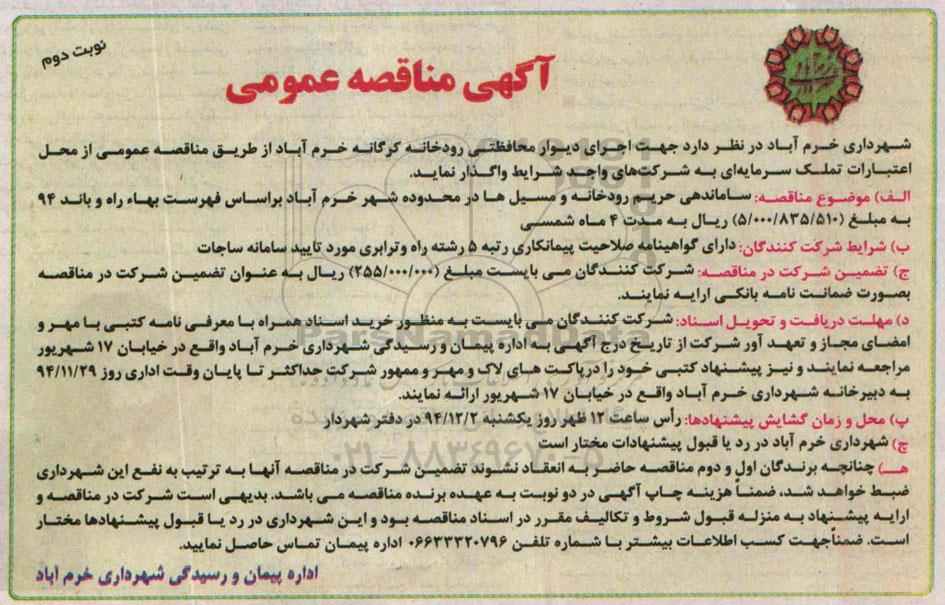 نوبت دوم
آگهی مناقصه عمومی
شهرداری خرم آباد در نظر دارد جهت اجرای دیوار محافظتی رودخانه کرگانه خرم آباد از طریق مناقصه عمومی از محل
اعتبارات تملک سرمایه‌ای به شرکت‌های واجد شرایط واگذار نماید.
الف) موضوع مناقصه: ساماندهی حریم رودخانه و مسیل ها در محدوده شهر خرم آباد براساس فهرست بهاء راه و باند ۹۴
به مبلغ (۵/۰۰۰/۸۳۵/۵۱۰) ریال به مدت ۴ ماه شمسی
ب) شرایط شرکت کنندگان: دارای گواهینامه صلاحیت پیمانکاری رتبه ۵ رشته راه وترابری مورد تایید سامانه ساجات
ج) تضمین شرکت در مناقصه: شرکت کنندگان می بایست مبلغ (۲۵۵/۰۰۰/۰۰۰) ریال به عنوان تضمین شرکت در مناقصه
بصورت ضمانت نامه بانکی ارایه نمایند.
د) مهلت دریافت و تحویل اسناد: شرکت کنندگان می بایست به منظور خرید اسناد همراه با معرفی نامه کتبی با مهر و
امضای مجاز و تعهد آور شرکت از تاریخ درج آگهی به اداره پیمان و رسیدگی شهرداری خرم آباد واقع در خیابان ۱۷ شهریور
مراجعه نمایند و نیز پیشنهاد کتبی خود را درپاکت های لاک و مهر و ممهور شرکت حداکثر تا پایان وقت اداری روز ۹۴/۱۱/۲۹
به دبیرخانه شهرداری خرم آباد واقع در خیابان ۱۷ شهریور ارائه نمایند.
پ) محل و زمان گشایش پیشنهادها: رأس ساعت ۱۲ ظهر روز یکشنبه ۹۴/۱۲/۲ در دفتر شهردار
چ) شهرداری خرم آباد در رد یا قبول پیشنهادات مختار است
هـ) چنانچه برندگان اول و دوم مناقصه حاضر به انعقاد نشوند تضمین شرکت در مناقصه آنها به ترتیب به نفع این شهرداری
ضبط خواهد شد، ضمناً هزینه چاپ آگهی در دو نوبت به عهده برنده مناقصه می باشد. بدیهی است شرکت در مناقصه و
ارایه پیشنهاد به منزله قبول شروط و تکالیف مقرر در اسناد مناقصه بود و این شهرداری در رد یا قبول پیشنهادها مختار
است. ضمناًجهت کسب اطلاعات بیشتر با شماره تلفن ۰۶۶۳۳۳۲۰۷۹۶ اداره پیمان تماس حاصل نمایید.
اداره پیمان و رسیدگی شهرداری خرم آباد
۰۲۱-۸۸۳۴۹۶۷۰-۵